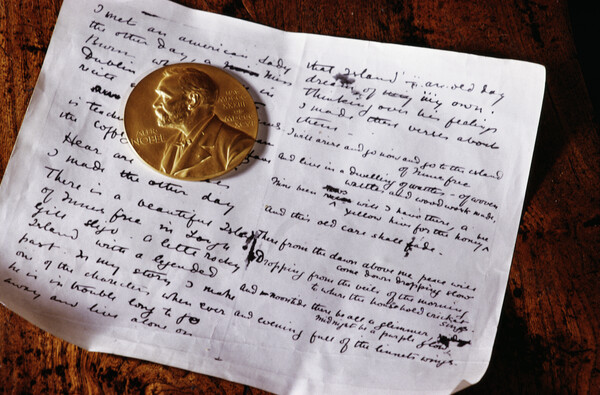 I met an american lady
the other day, a miss
Dublin
is teach
the Coffe
Hear
I made the other day
There is a beautiful Isla
of Innis free in Lough
Gill Sligo. a little rocky
Island with a legended
past. In my story I make
one of the charecters when ever
he is in trouble long to go
away and live alone on
that Island — an old day
dream of my own.
Thinking over his feelings
I made these verses about
them
I will arise and go now and go to the island
of Innis free
and live in a dwelling of wattles — of woven
wattles and wood work made,
Nine bean will I have there, a
yellow hive for the honey
And this old care shall fade.
There from the dawn above me peace will
come down dropping slow
Dropping from the veils of the morning
to where the household cricket
sings.
And noontide there be all a glimmer
midnight be a purple glow
and evening full of the linnets wings.
ALFR·
NOBEL